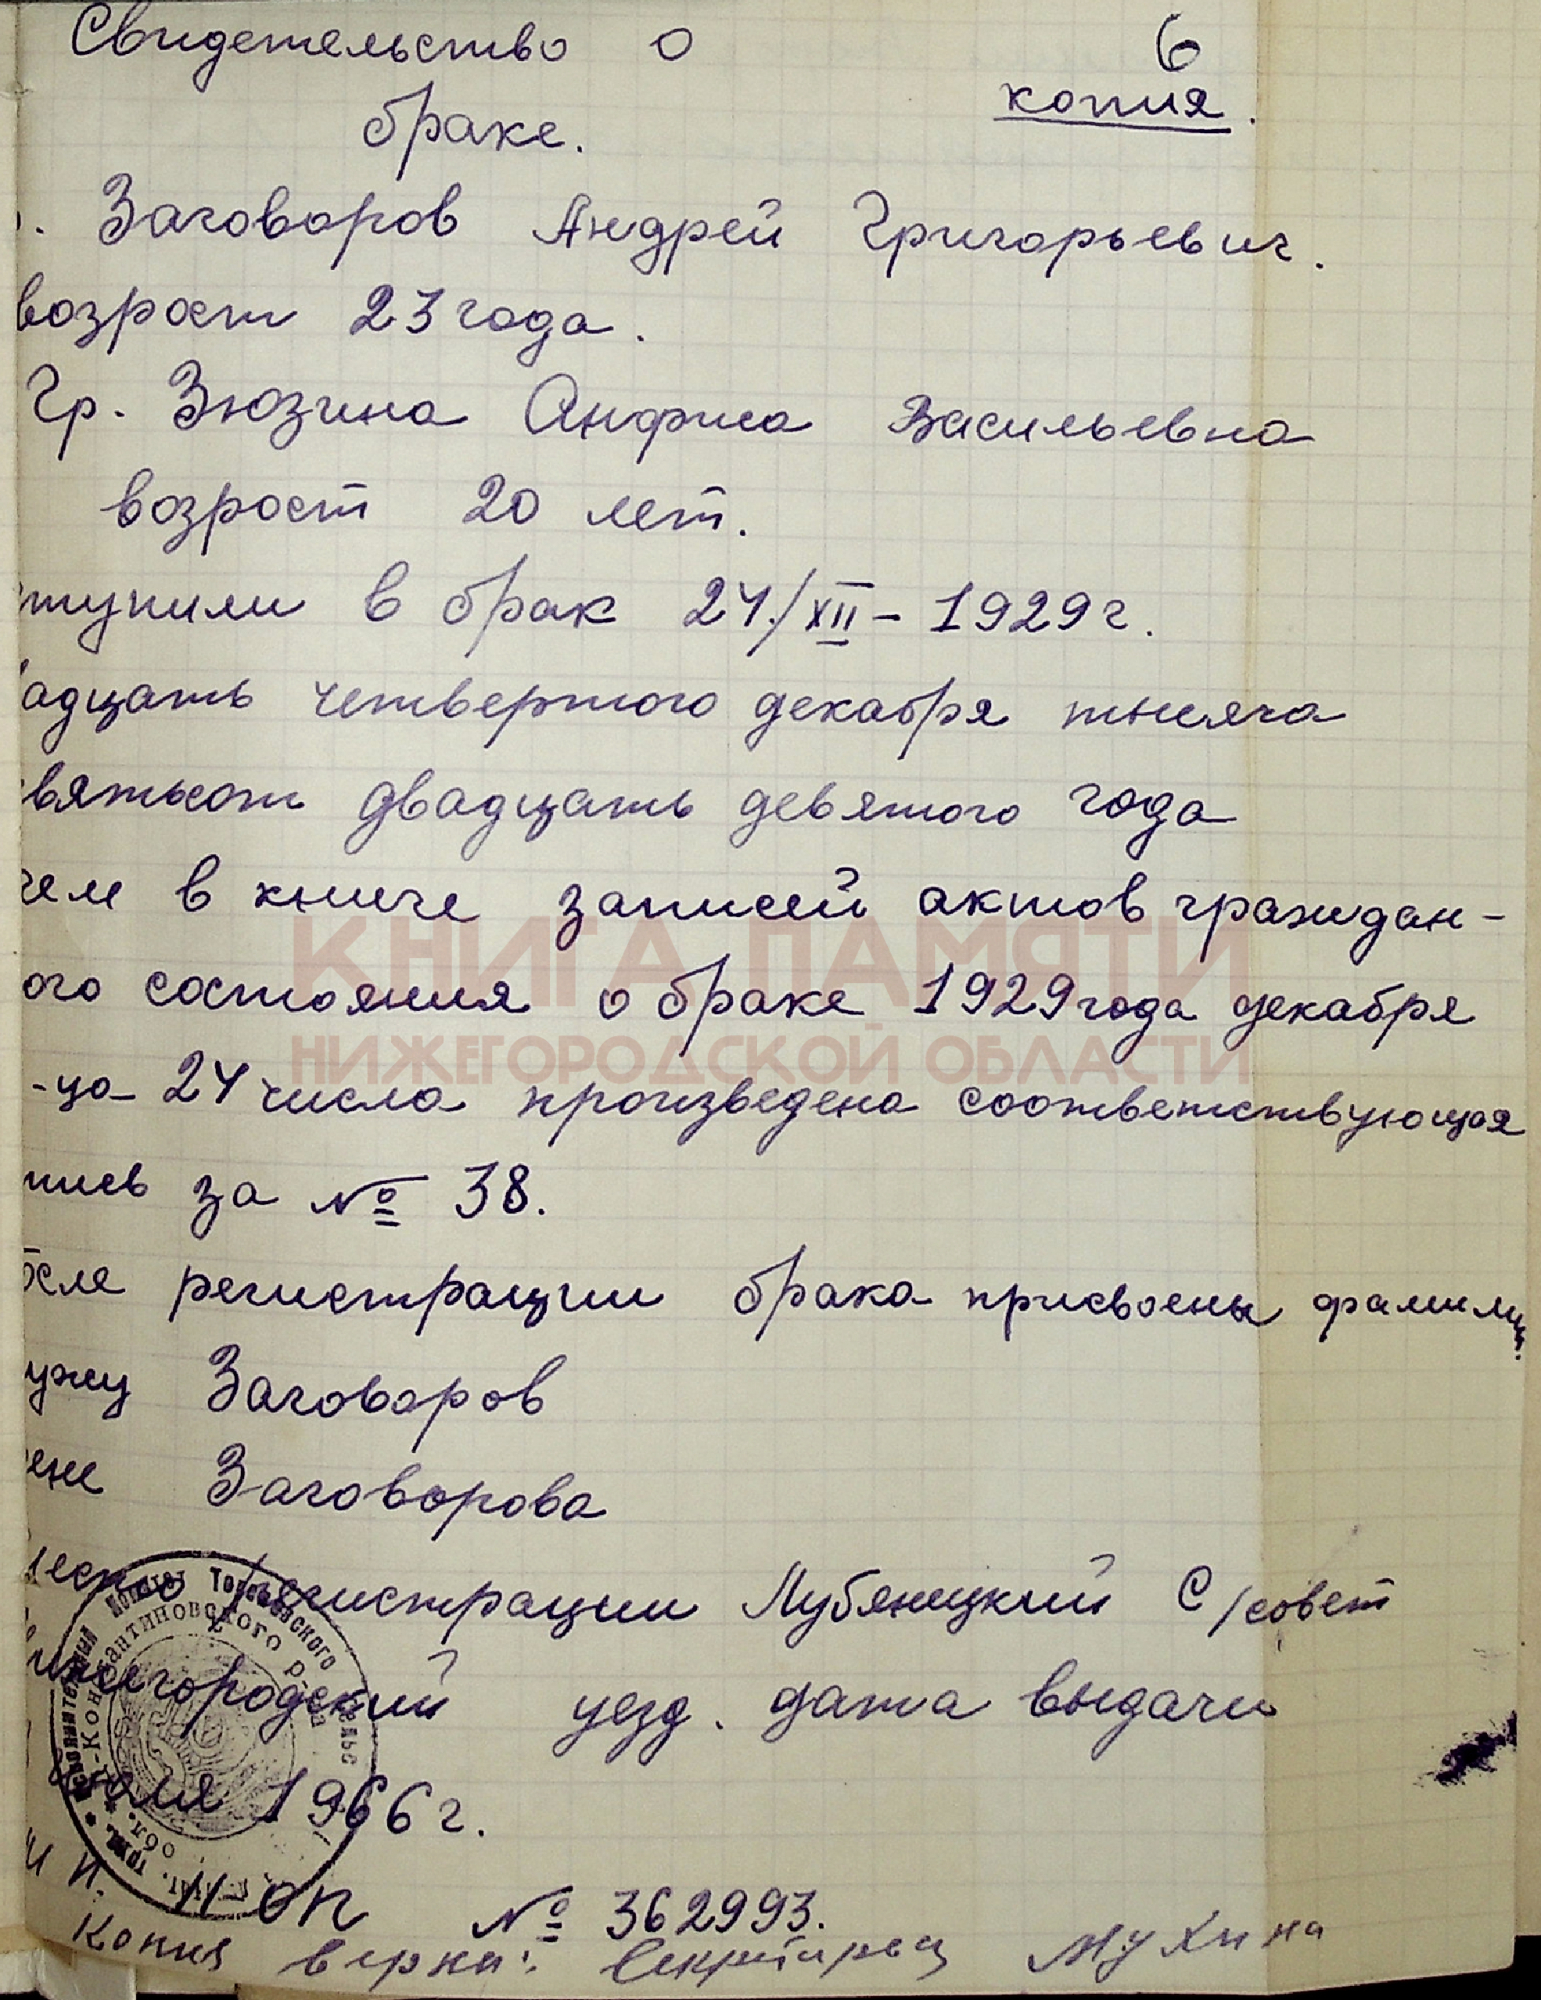 Свидетельство о
6
копия.
браке.
. Заговоров Андрей Григорьевич.
возрост 23 года.
Гр. Зюзина Анфиса Васильевна
возрост 20 лет.
тупили в брак 24./XII - 1929 г.
адцать четвертого декабря тысяча
вятьсот двадцать девятого года
чем в книге записей актов граждан-
ого состояния о браке 1929 года декабря
-ца 24 числа произведена соответствующая
пись за № 38.
осле регистрации брака присвоены фамилии.
ужу Заговоров
ене Заговорова
место регистрации Лубянецкий С/совет
городский уезд. дата выдачи
1966 г.
№ 362993.
Копия верна: Секретарь Мухина
КНИГА ПАМЯТИ
НИЖЕГОРОДСКОЙ ОБЛАСТИ